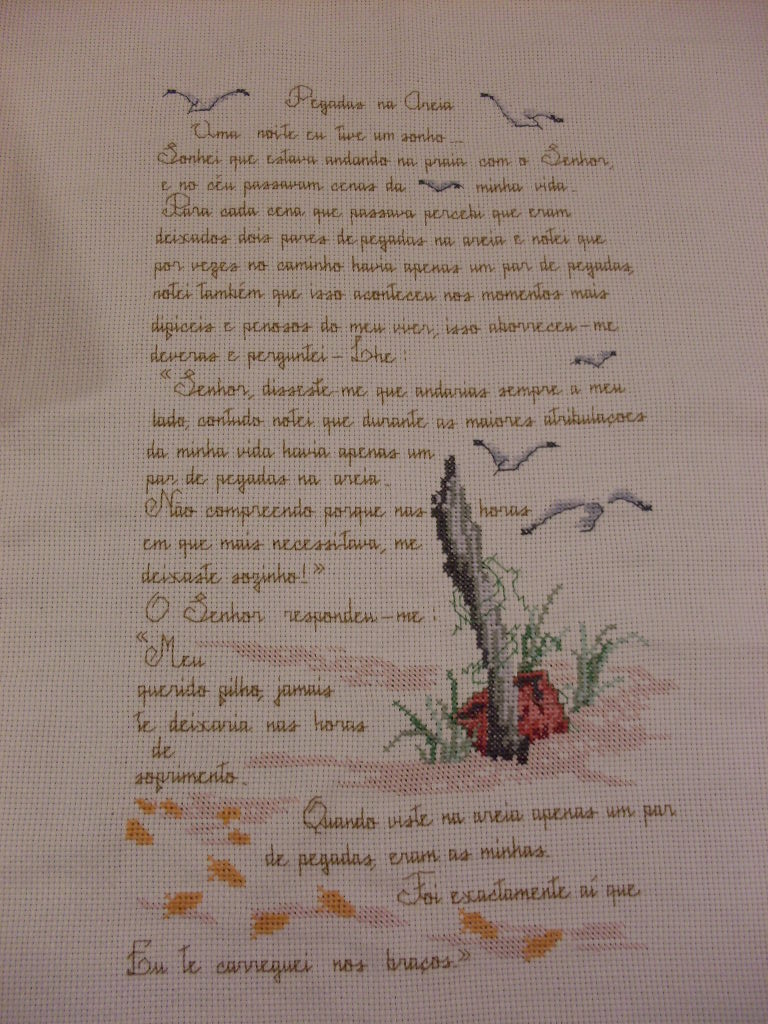 Pegadas na Areia
Uma noite eu tive um sonho...
Sonhei que estava andando na praia com o Senhor,
e no céu passavam cenas da minha vida.
Para cada cena que passava percebi que eram
deixados dois pares de pegadas na areia e notei que
por vezes no caminho havia apenas um par de pegadas,
notei também que isso aconteceu nos momentos mais
difíceis e penosos do meu viver, isso aborreceu-me
deveras e perguntei-Lhe:
"Senhor, disseste-me que andarias sempre a meu
lado, contudo notei que durante as maiores atribulações
da minha vida havia apenas um
par de pegadas na areia.
Não compreendo porque nas horas
em que mais necessitava, me
deixaste sozinho!"
O Senhor respondeu-me:
"Meu
querido filho, jamais
te deixaria nas horas
de
sofrimento.
Quando viste na areia apenas um par
de pegadas, eram as minhas.
Foi exactamente aí que
Eu te carreguei nos braços."